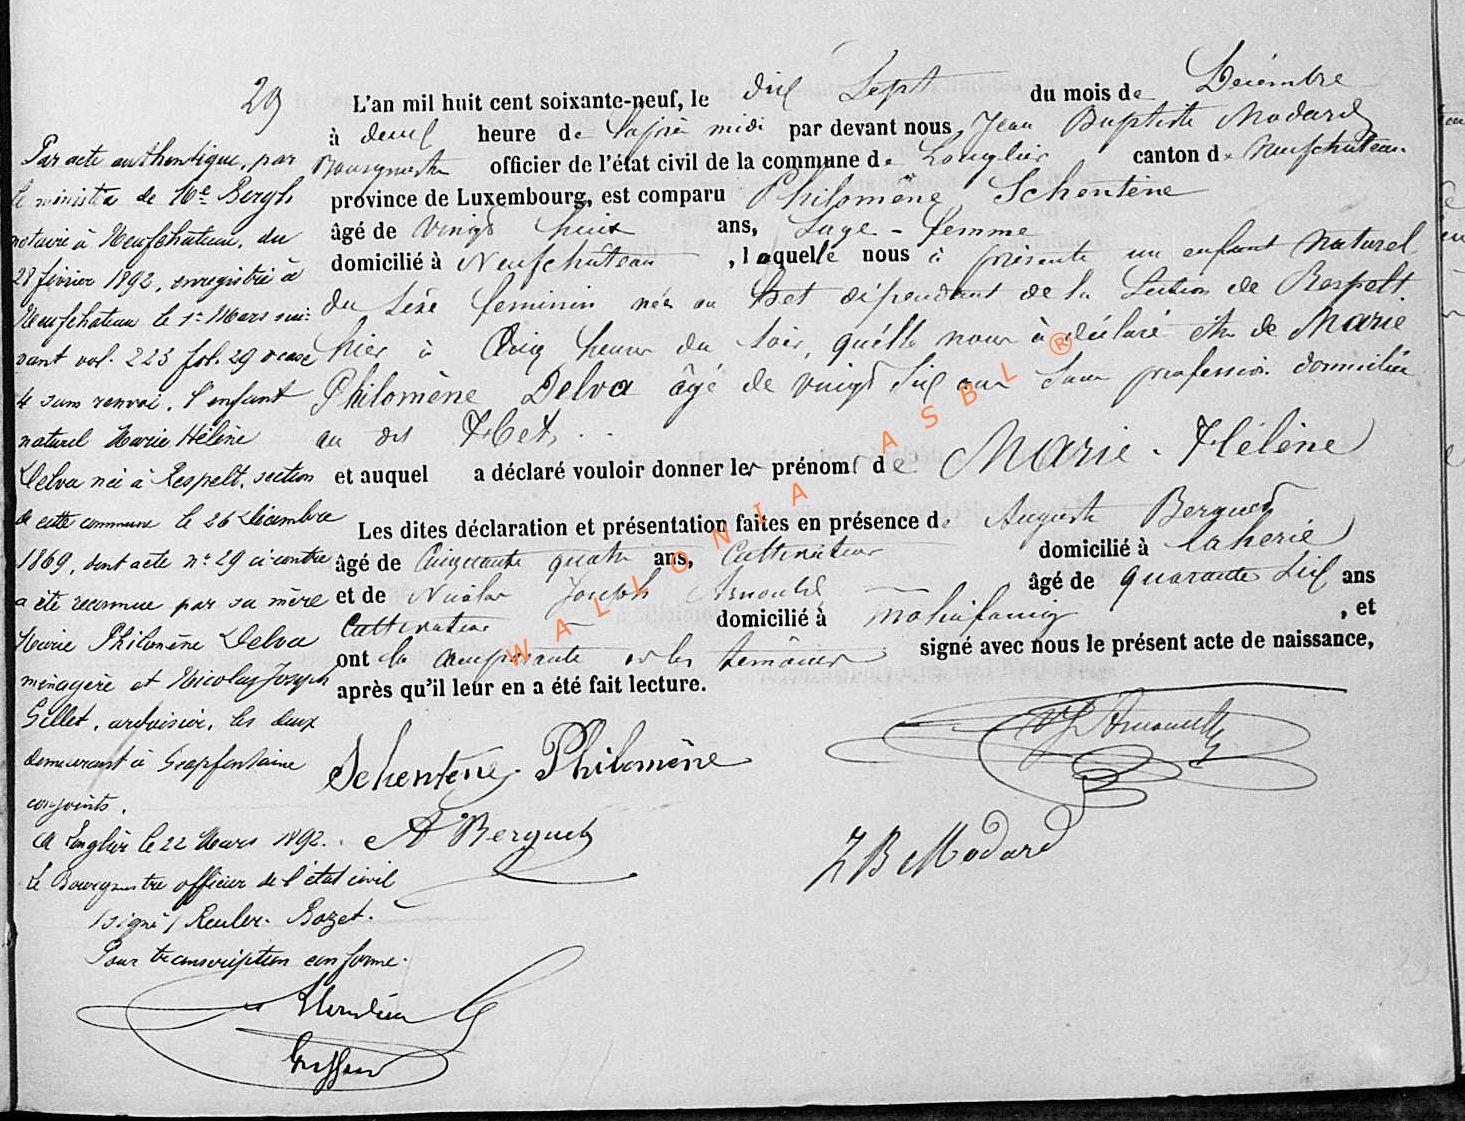 29
L'an mil huit cent soixante-neuf, le dix Sept du mois de Décembre
à deux heure de l'après midi par devant nous Jean Baptiste Modard
Bourgmestre officier de l'état civil de la commune de Longlier canton de Neufchateau
province de Luxembourg, est comparu Philomène Schentène
âgé de vingt huit ans, Sage-femme
domicilié à Neufchateau, laquelle nous à présenté un enfant Naturel
du Sexe feminin née au dépendant de la Section de Respelt
hier à Cinq heures du soir, quélle nous à déclaré être de Marie
Philomène Delva âgé de vingt six ans Sans profession domicilié
au dit
et auquel a déclaré vouloir donner les prénoms de Marie-Hélène
Les dites déclaration et présentation faites en présence de Auguste Berquet
âgé de Cinquante quatre ans, Cultivateur domicilié à Laherie
et de Nicolas Joseph Arnould âgé de quarante six ans
Cultivateur domicilié à , et
ont la comparante et les témoins signé avec nous le présent acte de naissance,
après qu'il leur en a été fait lecture.
Schentène Philomène
A Berquet
Arnould
J B Modard
Par acte authentique, par
le ministère de Me Bergh
notaire à Neufchâteau, du
28 février 1892, enregistré à
Neufchateau le 1er Mars sui-
vant vol. 223 fol. 29 v case
4 sans renvoi, l'enfant
naturel Marie Hélène
Delva née à Respelt, section
de cette commune le 26 Décembre
1869, dont acte n° 29 ci-contre
a été reconnue par sa mère
Marie Philomène Delva
ménagère et Nicolas Joseph
Gillet, ardoisier, les deux
demeurant à Grapfontaine
conjoints.
A Longlier le 22 Mars 1892.
Le Bourgmestre officier de l'état civil
(signé) Reuler-Bozet.
Pour transcription conforme.
WALLONIA ASBL ®